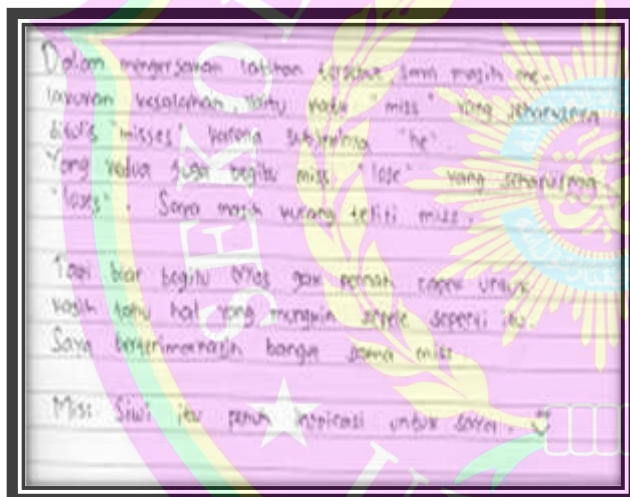 Dalam mengerjakan latihan tersebut, saya masih me-
lakukan kesalahan, yaitu kata "miss" yang seharusnya
ditulis "misses" karena subjeknya "he".
Yang kedua juga begitu miss "lose" yang seharusnya
"loses". Saya masih kurang teliti miss.
Tapi biar begitu Miss gak pernah capek untuk
kasih tahu hal yang mungkin sepele seperti itu.
Saya berterimakasih banget sama miss.
Miss Siwi itu penuh inspirasi untuk saya.
SEKOL